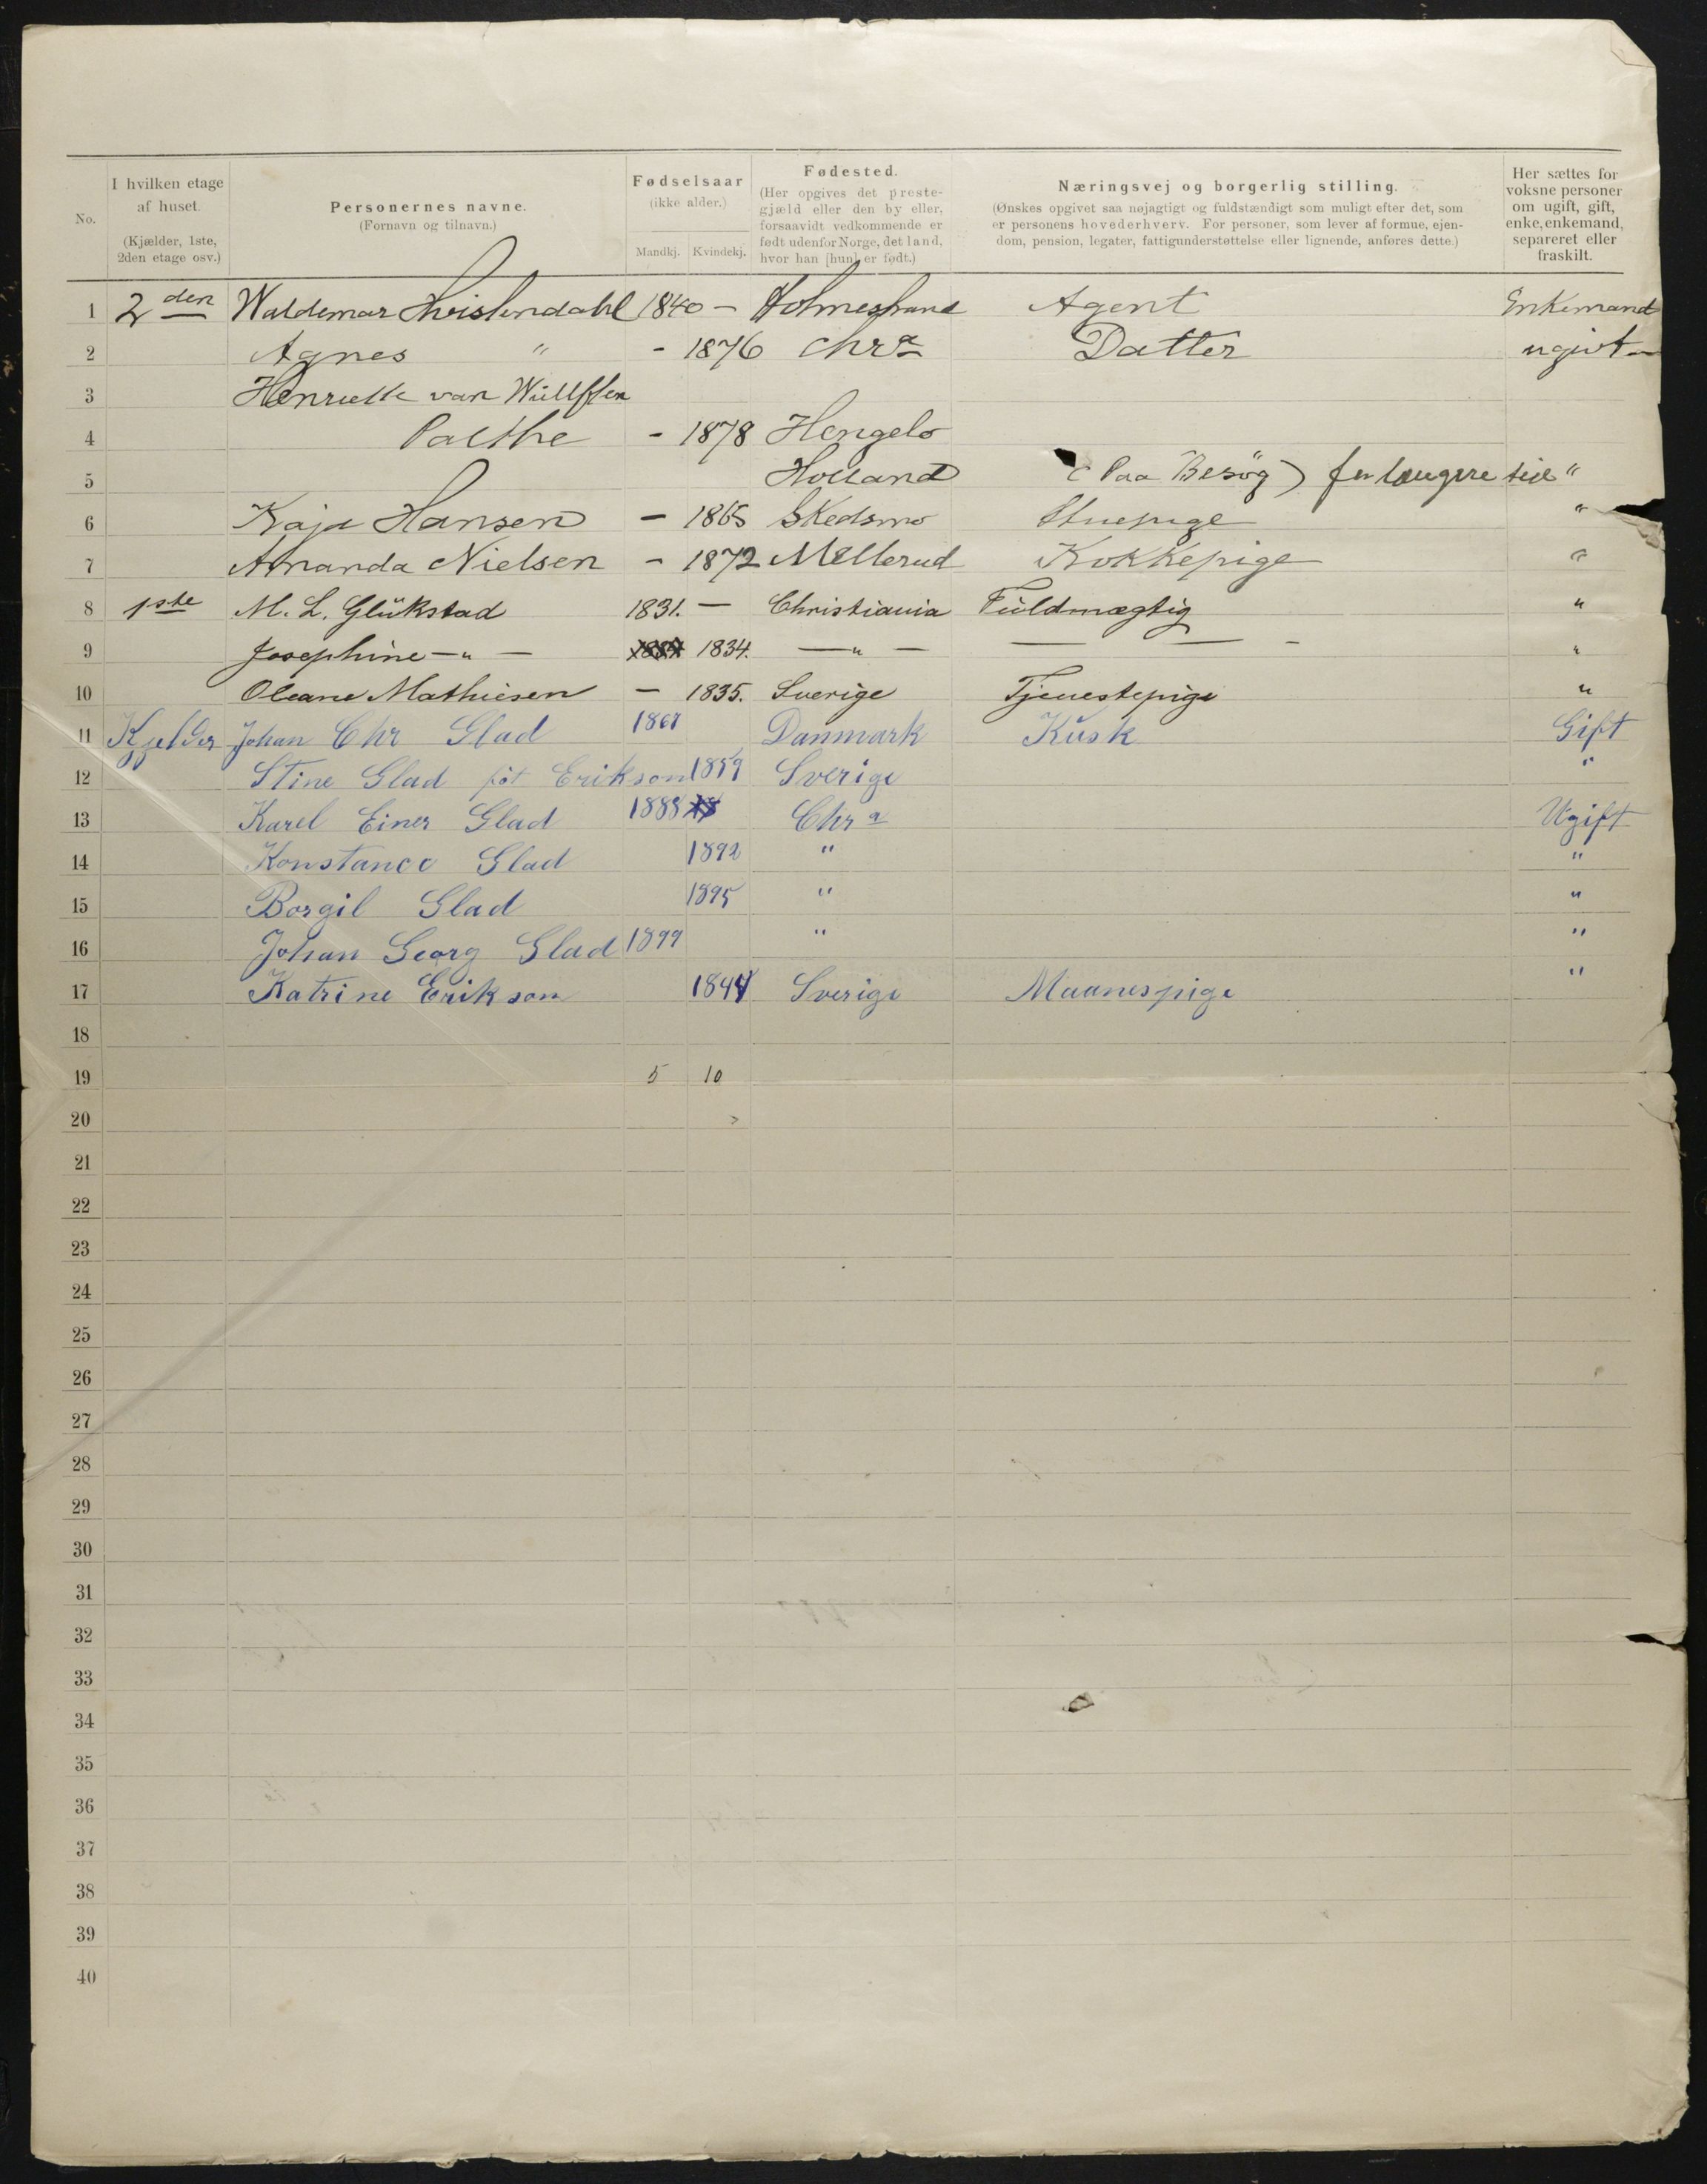 No.
I hvilken etage af huset. (Kjælder, 1ste, 2den etage osv.)
Personernes navne. (Fornavn og tilnavn.)
Fødselsaar (ikke alder.) Mandkj. Kvindekj.
Fødested. (Her opgives det prestegjæld eller den by eller, forsaavidt vedkommende er født udenfor Norge, det land, hvor han [hun] er født.)
Næringsvej og borgerlig stilling. (Ønskes opgivet saa nøjagtigt og fuldstændigt som muligt efter det, som er personens hovederhverv. For personer, som lever af formue, ejendom, pension, legater, fattigunderstøttelse eller lignende, anføres dette.)
Her sættes for voksne personer om ugift, gift, enke, enkemand, separeret eller fraskilt.
1 2den Waldemar 1840 — Holmestrand Agent Enkemand
2 Agnes " - 1876 Chra Datter ugivt -
3 Henriette van Wüllften
4 Palthe - 1878 Hengelo
5 Holland (Paa Besög) for længere tid "
6 Kaja Hansen - 1865 Skedsmo Stuepige "
7 Amanda Nielsen - 1872 Mellerud Kokkepige "
8 1ste M. L. Glükstad 1831. — Christiania Fuldmægtig "
9 Josephine —"— 1834. —"— — — - "
10 Oleane Mathiesen — 1835. Sverige Tjenestepige "
11 Kjelder Johan Chr Glad Danmark Kusk Gift
12 Stine Glad föt Erikson 1859 Sverige "
13 Karel Einer Glad 1888 Chra Ugift
14 Konstance Glad 1892 " "
15 Borgil Glad 1895 " "
16 Johan Georg Glad 1899 " "
17 Katrine Erikson 1844 Sverige Maanespige "
18
19 5 10
20
21
22
23
24
25
26
27
28
29
30
31
32
33
34
35
36
37
38
39
40